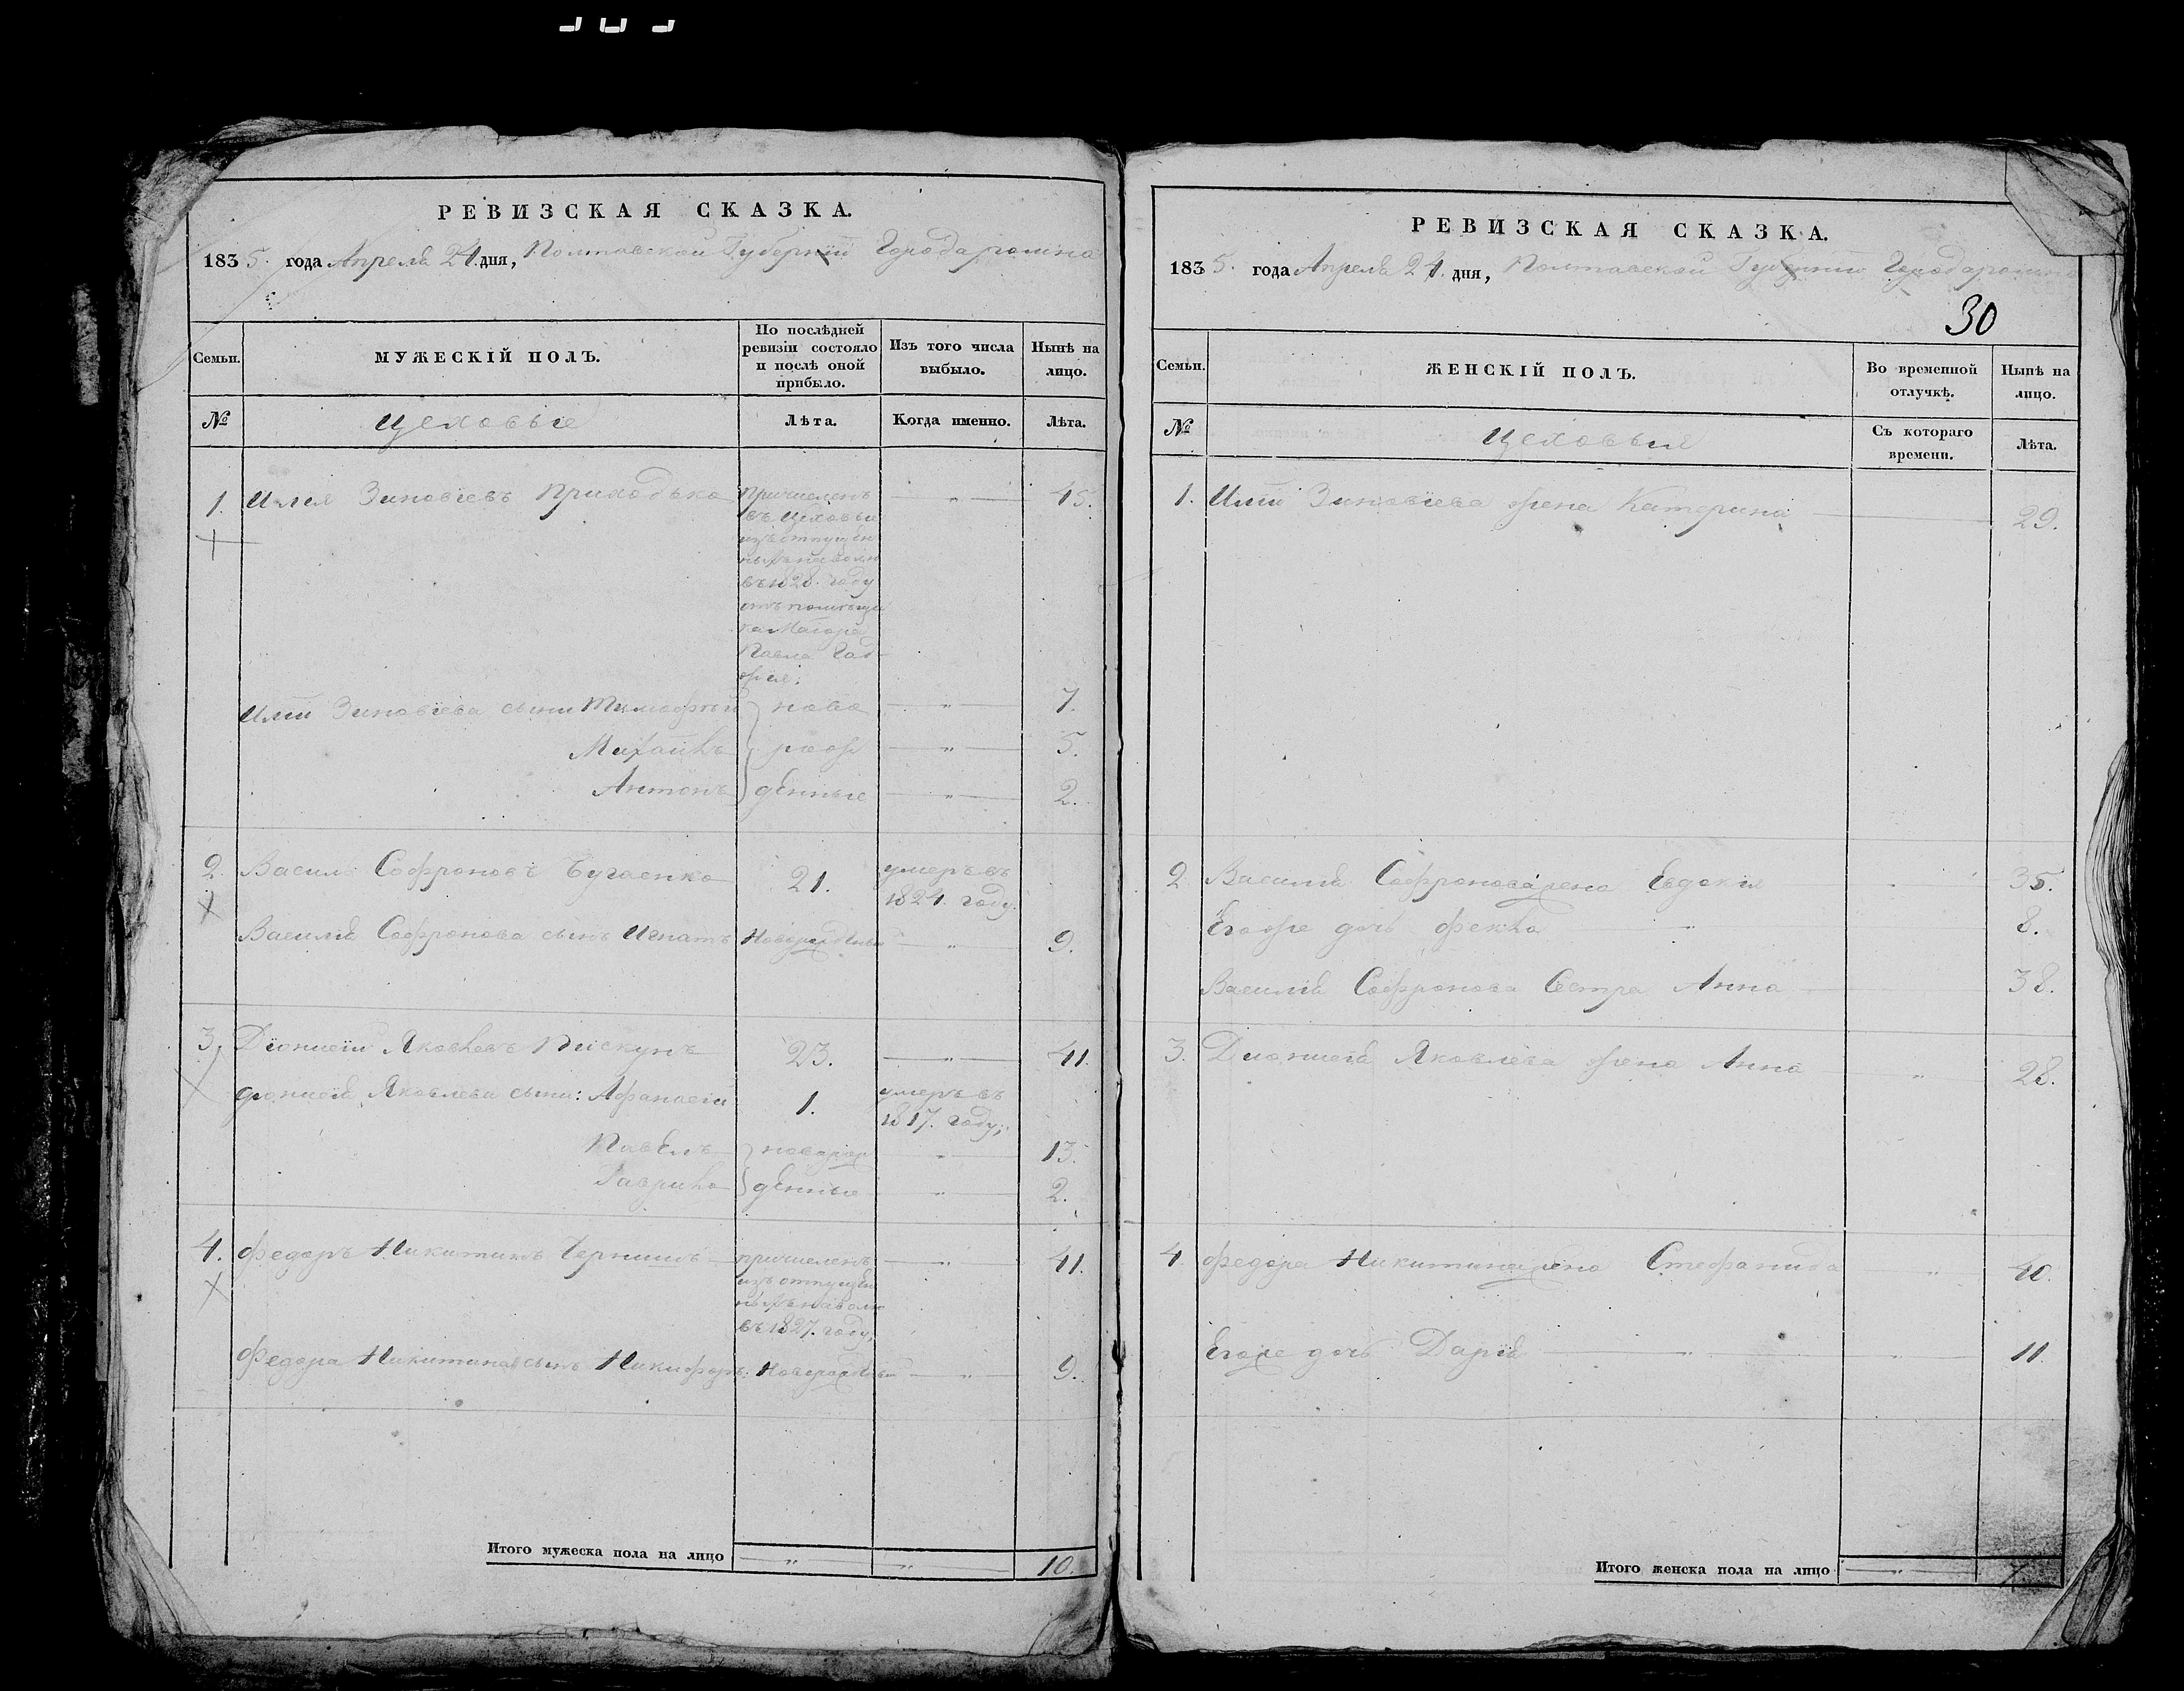 РЕВИЗСКАЯ СКАЗКА.
1835. года Апреля 24. дня, Полтавской Губернии Города ромна
Семьи.
МУЖЕСКІЙ ПОЛЪ.
По послѣдней ревизіи состояло и послѣ оной прибыло.
Изъ того числа выбыло.
Нынѣ на лицо.
№
Цеховые
Лѣта.
Когда именно.
Лѣта.
1. Илля Зиновіевъ Приходько
причисленъ
въ Цеховыи
изъ отпущен
ныхъ на волю
въ 1828. году
отъ помѣщи
ка Маіора
Павла
45.
Илли Зиновіева сыни Тимофѣй
ново
7.
Михайлъ
рож
5.
Антонъ
денные
2.
2. Василь Софроновъ Бугаенко
21.
умеръ въ
1824. году.
Василія Софронова сынъ Игнатъ Новорожденный 9.
3. Діонисій Яковлевъ Пискунъ 23. 41.
Діонисія Яковлева сыни: Афанасій
1.
умеръ въ
1817. году;
Павелъ
новорож
13.
Гаврило
денные
2.
4. Федоръ Никитинъ
причисленъ
изъ отпущен
ныхъ на волю
въ 1827. году,
41.
Федора Никитина сынъ Никифоръ: Новорожденный 9.
Итого мужеска пола на лицо 10.
РЕВИЗСКАЯ СКАЗКА.
1835. года Апреля 24. дня, Полтавской Губернии Города ромна
30
Семьи.
ЖЕНСКІЙ ПОЛЪ.
Во временной отлучкѣ.
Нынѣ на лицо.
№
Цеховыя
Съ котораго времени.
Лѣта.
1. Иллі Зиновіева жена Катерина 29.
2. Василія Софронова жена Евдокія 35.
Егоже дочь Фекла 8.
Василія Софронова Сестра Анна 38.
3. Дионисія Яковлева жена Анна 28.
4. Федора Никитина жена Стефанида 40.
Егоже дочь Дарія 11.
Итого женска пола на лицо 7